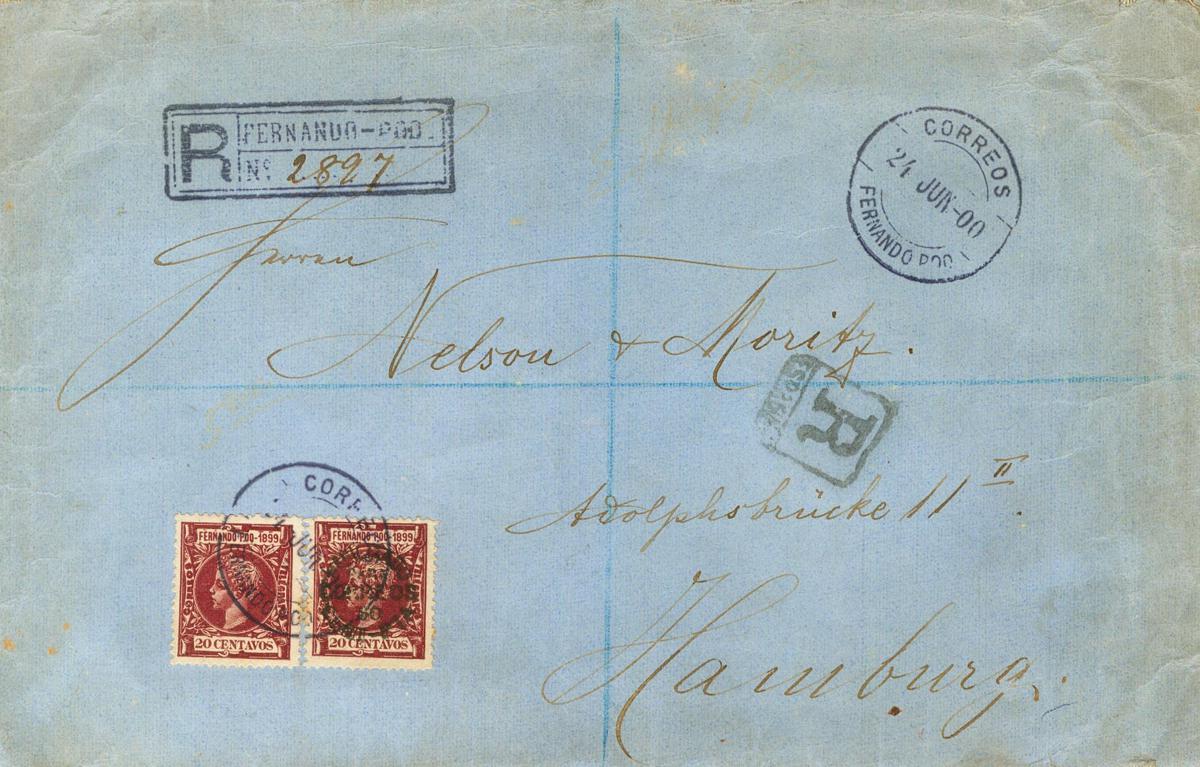 R FERNANDO-POO.
Nº 2897
CORREOS
24 JUN-00
FERNANDO POO
Herren
Nelson & Moritz.
R
Adolphsbrücke 11 II.
Hamburg.
CORREOS
JUN
FERNANDO POO
FERNANDO POO-1899
20 CENTAVOS
FERNANDO POO-1899
CORREOS
50
20 CENTAVOS